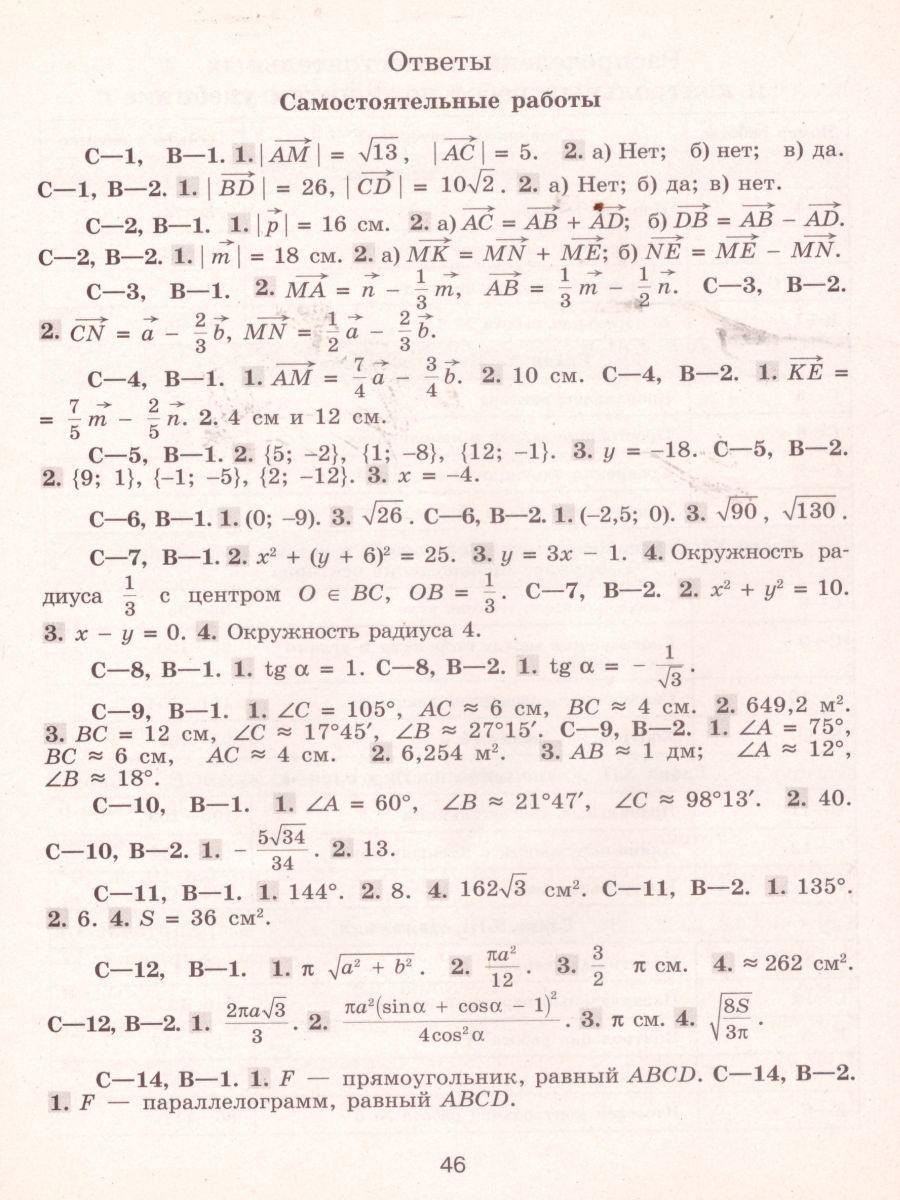 Ответы
Самостоятельные работы
С—1, В—1. 1. |AM⃗| = √13, |AC⃗| = 5. 2. а) Нет; б) нет; в) да.
С—1, В—2. 1. |BD⃗| = 26, |CD⃗| = 10√2. 2. а) Нет; б) да; в) нет.
С—2, В—1. 1. |p⃗| = 16 см. 2. а) AC⃗ = AB⃗ + AD⃗; б) DB⃗ = AB⃗ − AD⃗.
С—2, В—2. 1. |m⃗| = 18 см. 2. а) MK⃗ = MN⃗ + ME⃗; б) NE⃗ = ME⃗ − MN⃗.
С—3, В—1. 2. MA⃗ = n⃗ − 1/3 m⃗, AB⃗ = 1/3 m⃗ − 1/2 n⃗. С—3, В—2.
2. CN⃗ = a⃗ − 2/3 b⃗, MN⃗ = 1/2 a⃗ − 2/3 b⃗.
С—4, В—1. 1. AM⃗ = 7/4 a⃗ − 3/4 b⃗. 2. 10 см. С—4, В—2. 1. KE⃗ =
= 7/5 m⃗ − 2/5 n⃗. 2. 4 см и 12 см.
С—5, В—1. 2. {5; −2}, {1; −8}, {12; −1}. 3. y = −18. С—5, В—2.
2. {9; 1}, {−1; −5}, {2; −12}. 3. x = −4.
С—6, В—1. 1. (0; −9). 3. √26. С—6, В—2. 1. (−2,5; 0). 3. √90, √130.
С—7, В—1. 2. x² + (y + 6)² = 25. 3. y = 3x − 1. 4. Окружность ра-
диуса 1/3 с центром O ∈ BC, OB = 1/3. С—7, В—2. 2. x² + y² = 10.
3. x − y = 0. 4. Окружность радиуса 4.
С—8, В—1. 1. tg α = 1. С—8, В—2. 1. tg α = − 1/√3.
С—9, В—1. 1. ∠C = 105°, AC ≈ 6 см, BC ≈ 4 см. 2. 649,2 м².
3. BC = 12 см, ∠C ≈ 17°45′, ∠B ≈ 27°15′. С—9, В—2. 1. ∠A = 75°,
BC ≈ 6 см, AC ≈ 4 см. 2. 6,254 м². 3. AB ≈ 1 дм; ∠A ≈ 12°,
∠B ≈ 18°.
С—10, В—1. 1. ∠A = 60°, ∠B ≈ 21°47′, ∠C ≈ 98°13′. 2. 40.
С—10, В—2. 1. − 5√34/34. 2. 13.
С—11, В—1. 1. 144°. 2. 8. 4. 162√3 см². С—11, В—2. 1. 135°.
2. 6. 4. S = 36 см².
С—12, В—1. 1. π √(a² + b²). 2. πa²/12. 3. 3/2 π см. 4. ≈ 262 см².
С—12, В—2. 1. 2πa√3/3. 2. πa²(sinα + cosα − 1)²/4cos²α. 3. π см. 4. √(8S/3π).
С—14, В—1. 1. F — прямоугольник, равный ABCD. С—14, В—2.
1. F — параллелограмм, равный ABCD.
46